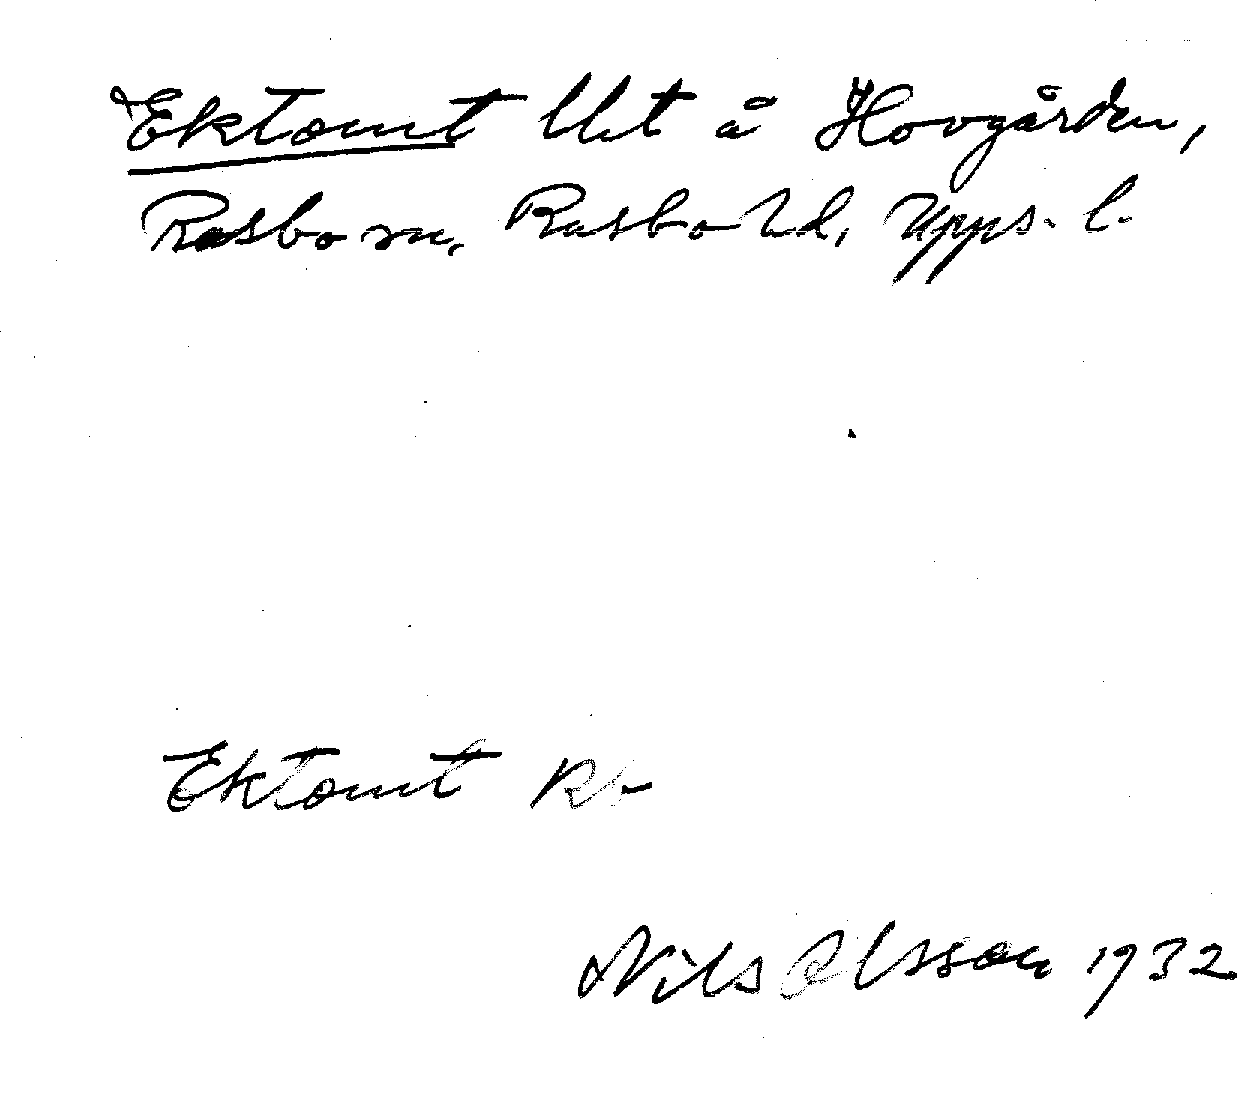 Ektomt Ut å Hovgården,
Rasbo sn, Rasbo hd, Upps. l.
Ektomt Rb
Nils Olsson 1932